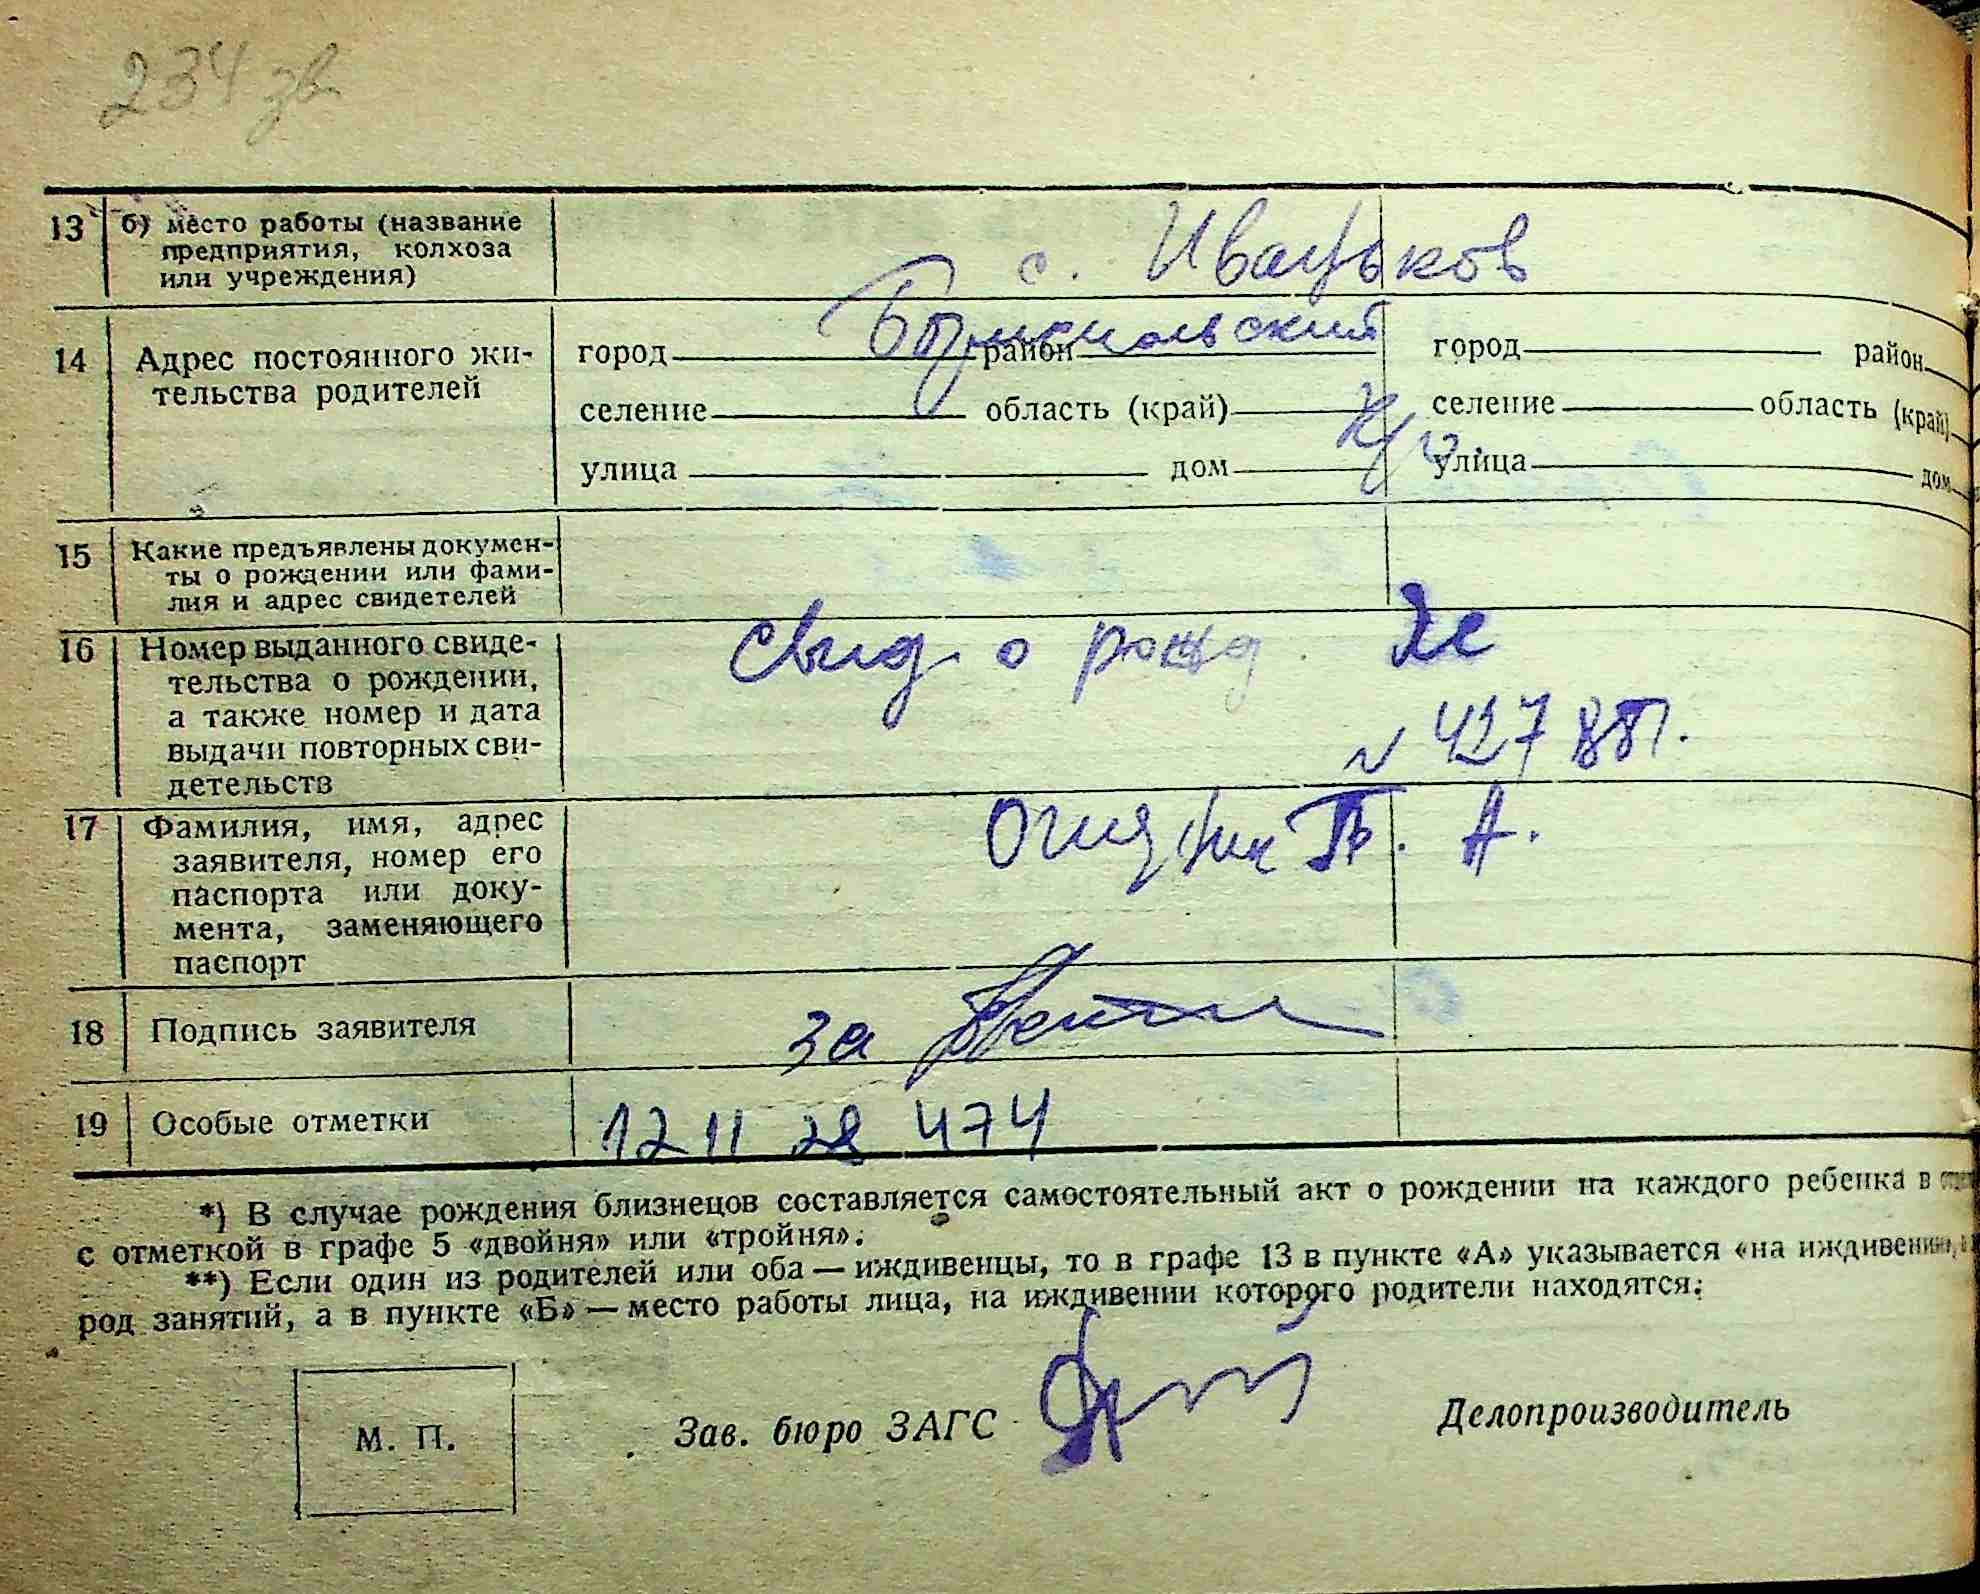 234 зв
13 б) место работы (название
предприятия, колхоза
или учреждения)
с. Иваньков
Бориспольский
14 Адрес постоянного жи-
тельства родителей
город район город район
селение область (край) селение область (край)
улица дом улица дом
15 Какие предъявлены докумен-
ты о рождении или фами-
лия и адрес свидетелей
16 Номер выданного свиде-
тельства о рождении,
а также номер и дата
выдачи повторных сви-
детельств
Свид о рожд.
N 427
17 Фамилия, имя, адрес
заявителя, номер его
паспорта или доку-
мента, заменяющего
паспорт
А.
18 Подпись заявителя
за
19 Особые отметки
12 11 28 474
*) В случае рождения близнецов составляется самостоятельный акт о рождении на каждого ребенка в
с отметкой в графе 5 «двойня» или «тройня».
**) Если один из родителей или оба — иждивенцы, то в графе 13 в пункте «А» указывается «на иждивении,
род занятий, а в пункте «Б» — место работы лица, на иждивении которого родители находятся.
М. П.
Зав. бюро ЗАГС
Делопроизводитель